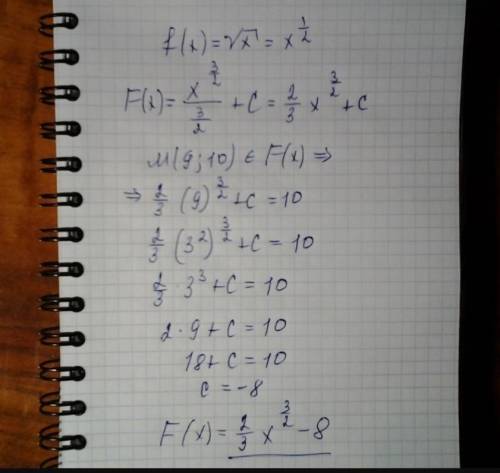 f(x) = √x = x^{1/2}
F(x) = \frac{x^{3/2}}{3/2} + C = \frac{2}{3} x^{3/2} + C
M(9; 10) ∈ F(x) ⇒
⇒ \frac{2}{3} (9)^{3/2} + C = 10
\frac{2}{3} (3^2)^{3/2} + C = 10
\frac{2}{3} · 3^3 + C = 10
2 · 9 + C = 10
18 + C = 10
C = -8
F(x) = \frac{2}{3} x^{3/2} - 8